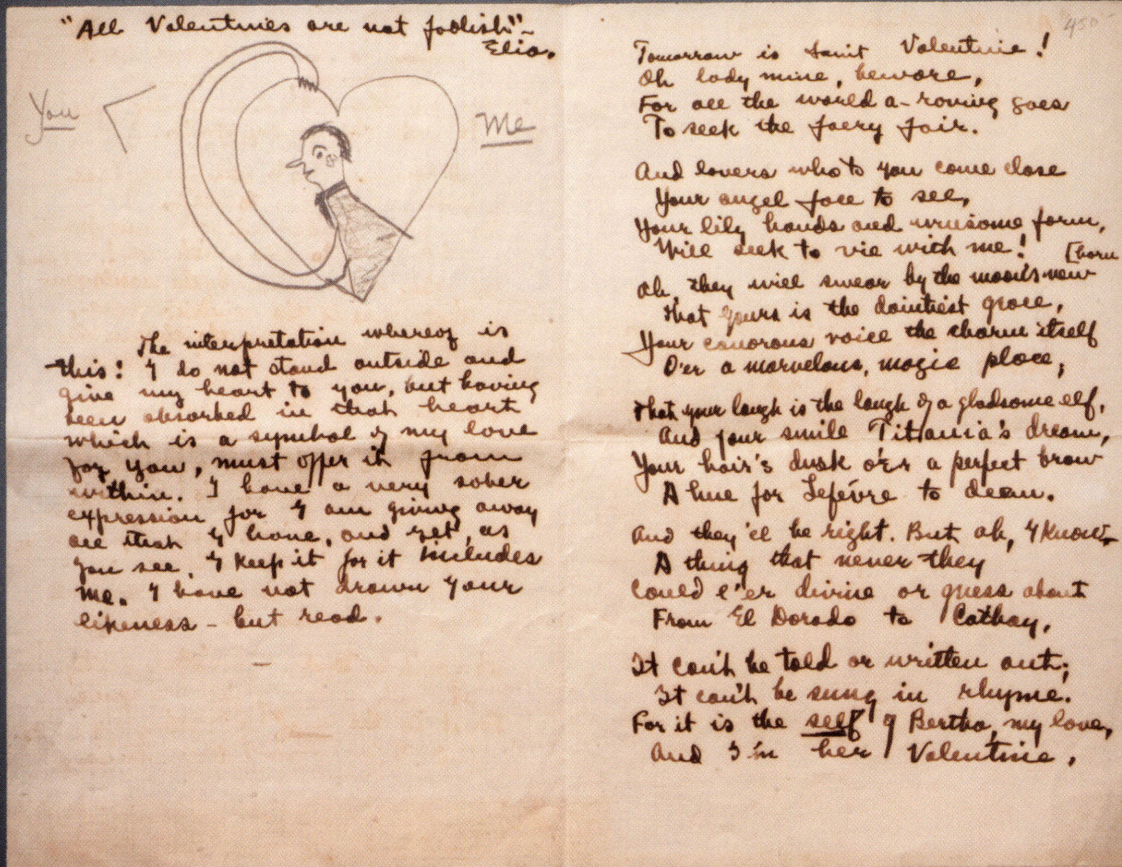 "All Valentines are not foolish" -
Elia.
You
Me
The interpretation whereof is
this: I do not stand outside and
give my heart to you, but having
been absorbed in that heart
which is a symbol of my love
for you, must offer it from
within. I have a very sober
expression for I am giving away
all that I have, and yet, as
you see, I keep it for it includes
me. I have not drawn your
likeness - but read.
450-
Tomorrow is Saint Valentine!
Oh lady mine, beware,
For all the world a-roving goes
To seek the faery fair.
And lovers who to you come close
Your angel face to see,
Your lily hands and winsome form,
Will seek to vie with me!
Ah, they will swear by the moon's new [horn
That yours is the daintiest grace,
Your canorous voice the charm itself
O'er a marvelous, magic place;
That your laugh is the laugh of a gladsome elf,
And your smile Titania's dream,
Your hair's dusk o'er a perfect brow
A hue for Lefévre to deem.
And they'll be right. But ah, I know
A thing that never they
Could e'er divine or guess about
From El Dorado to Cathay,
It can't be told or written out;
It can't be sung in rhyme.
For it is the self of Bertha, my love,
And I'm her Valentine.